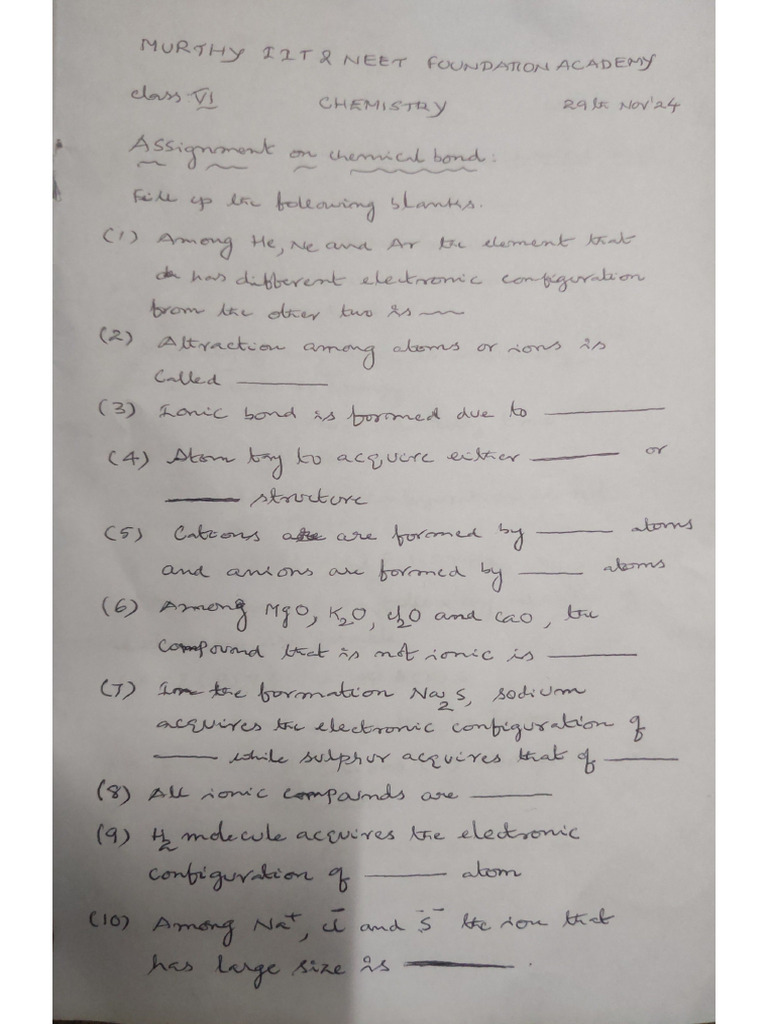 MURTHY IIT & NEET FOUNDATION ACADEMY
Class VI CHEMISTRY 29th Nov'24
Assignment on chemical bond:
Fill up the following blanks.
(1) Among He, Ne and Ar the element that
has different electronic configuration
from the other two is ___
(2) Attraction among atoms or ions is
called ______
(3) Ionic bond is formed due to ______
(4) Atom try to acquire either ______ or
______ structure
(5) Cations are formed by ______ atoms
and anions are formed by ______ atoms
(6) Among MgO, K₂O, Cl₂O and CaO, the
compound that is not ionic is ______
(7) In the formation Na₂S, sodium
acquires the electronic configuration of
______ while sulphur acquires that of ______
(8) All ionic compounds are ______
(9) H₂ molecule acquires the electronic
configuration of ______ atom
(10) Among Na⁺, Cl⁻ and S⁻⁻ the ion that
has large size is ______.